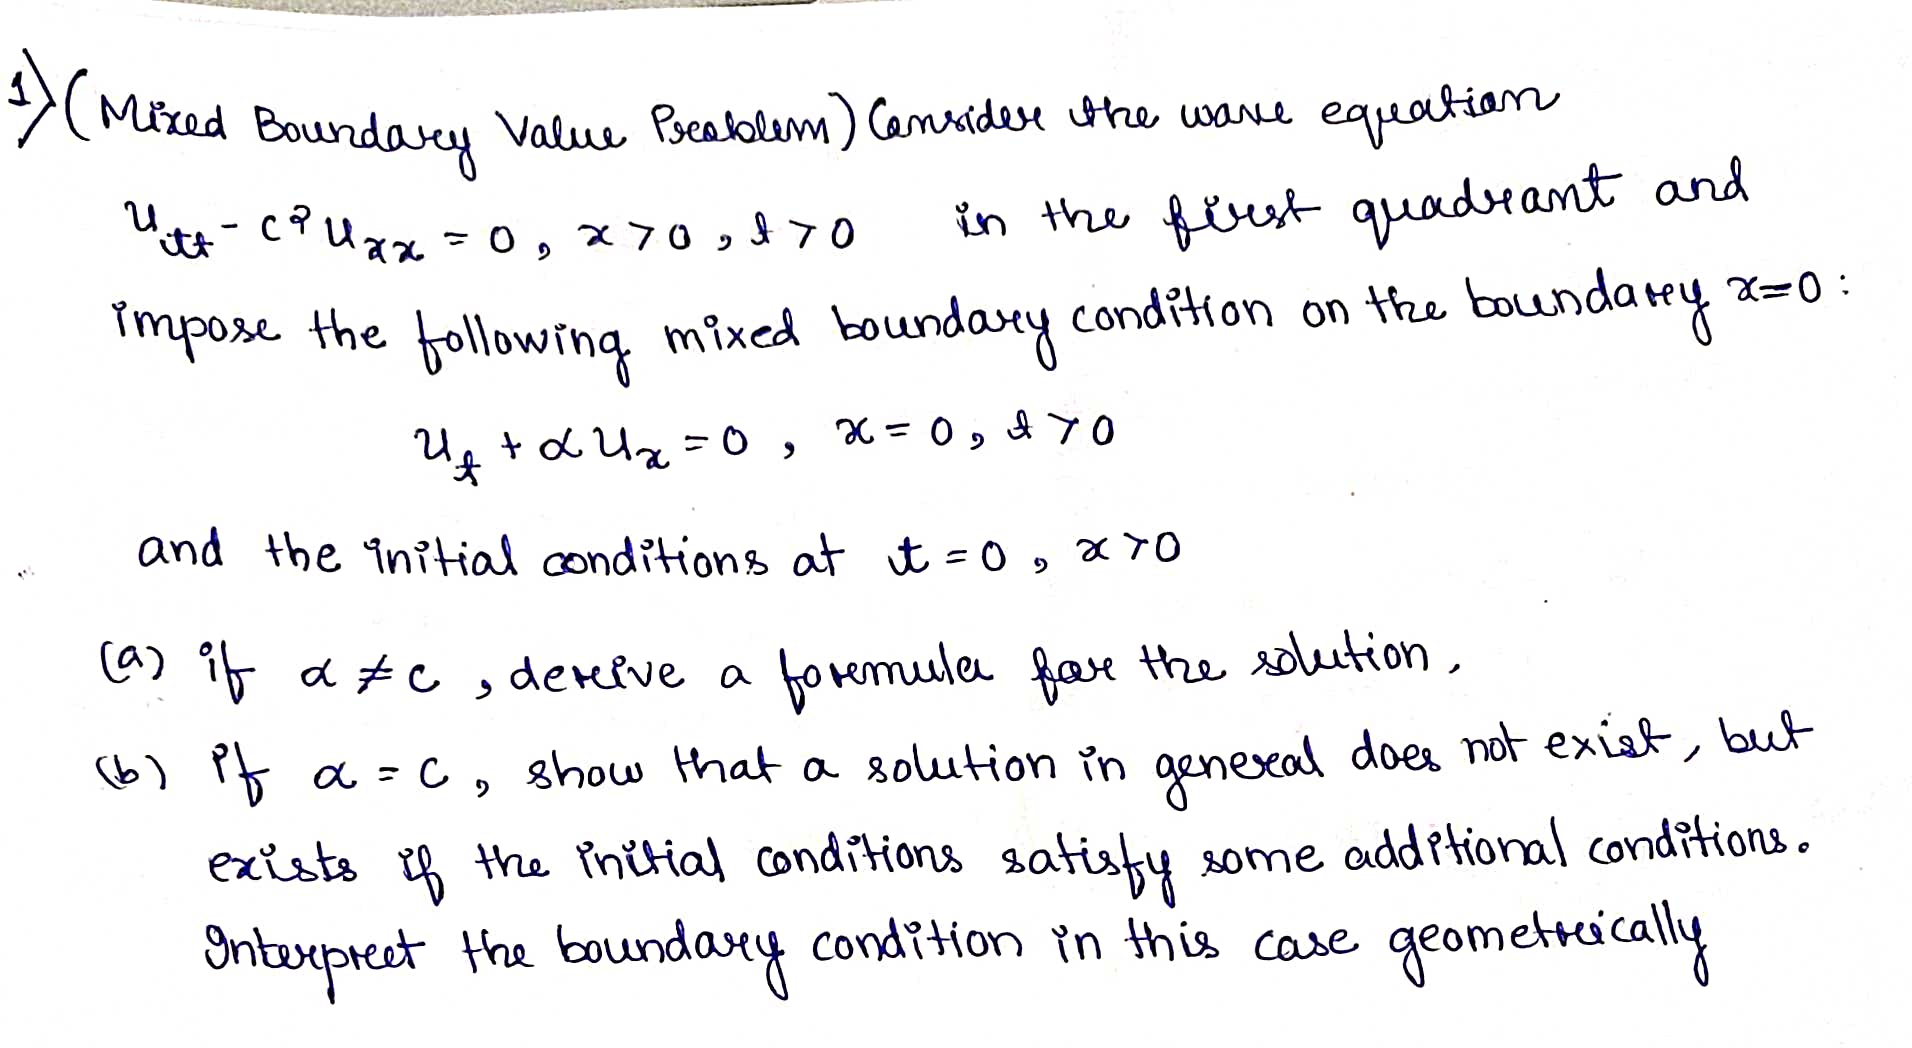 1) (Mixed Boundary Value Problem) Consider the wave equation
u_tt - c²u_xx = 0, x>0, t>0 in the first quadrant and
impose the following mixed boundary condition on the boundary x=0:
u_t + αu_x = 0, x=0, t>0
and the initial conditions at t=0, x>0
(a) if α≠c, derive a formula for the solution.
(b) If α=c, show that a solution in general does not exist, but
exists if the initial conditions satisfy some additional conditions.
Interpret the boundary condition in this case geometrically